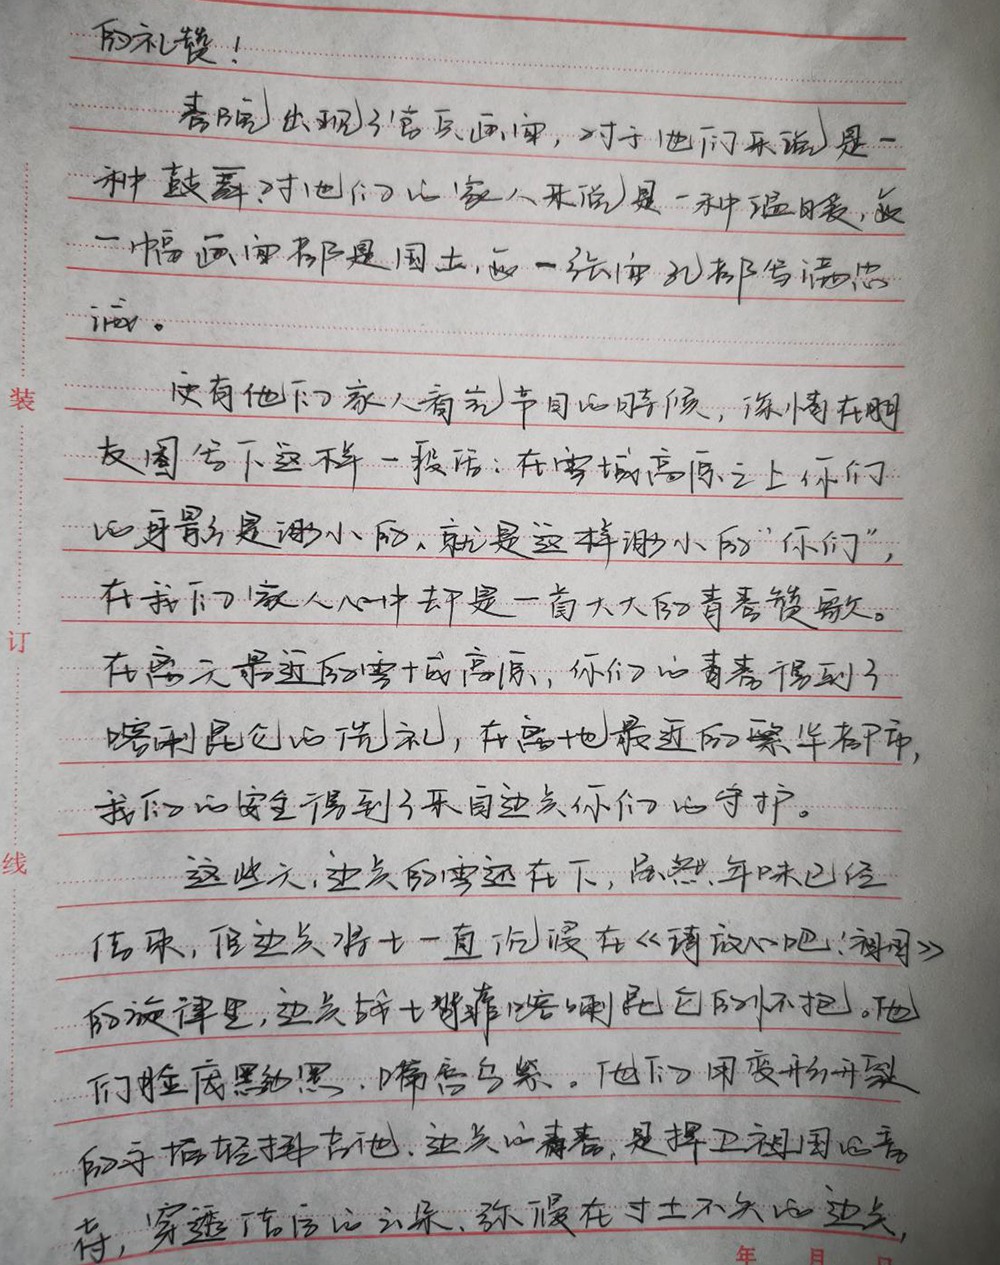 的礼赞！
春晚出现了官兵画面，对于他们来说是一
种鼓舞，对他们的家人来说是一种温暖，每
一幅画面都是国土，每一张面孔都写满忠
诚。
更有他们家人看完节目的时候，深情在朋
友圈写下这样一段话：在雪域高原之上你们
的身影是渺小的，就是这样渺小的“你们”，
在我们家人心中却是一首大大的青春赞歌。
在离天最近的雪域高原，你们的青春得到了
喀喇昆仑的洗礼，在离地最近的繁华都市，
我们的安全得到了来自边关你们的守护。
这些天，边关的雪还在下，虽然年味已经
结束，但边关将士一直沉浸在《请放心吧！祖国》
的旋律里，边关战士背靠喀喇昆仑的怀抱。他
们脸庞黝黑，嘴唇乌紫。他们用变形开裂
的手指轻弹吉他，边关的青春，是捍卫祖国的音
符，穿透洁白的云朵，弥漫在寸土不失的边关，
装
订
线
年 月 日